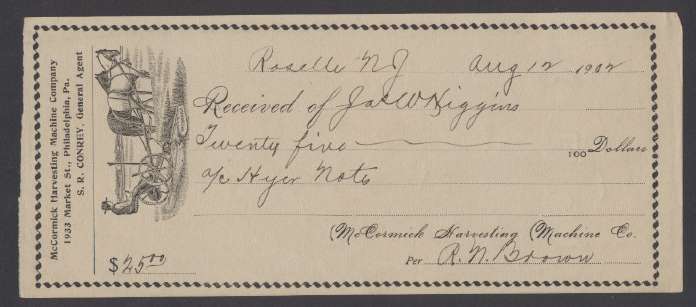 McCormick Harvesting Machine Company
1933 Market St., Philadelphia, Pa.
S. R. CONREY, General Agent
Roselle NJ Aug 12 1902
Received of Jas W Higgins
Twenty five 100 Dollars
a/c Hyer Note
McCormick Harvesting Machine Co.
$25.00 Per R. N. Brown